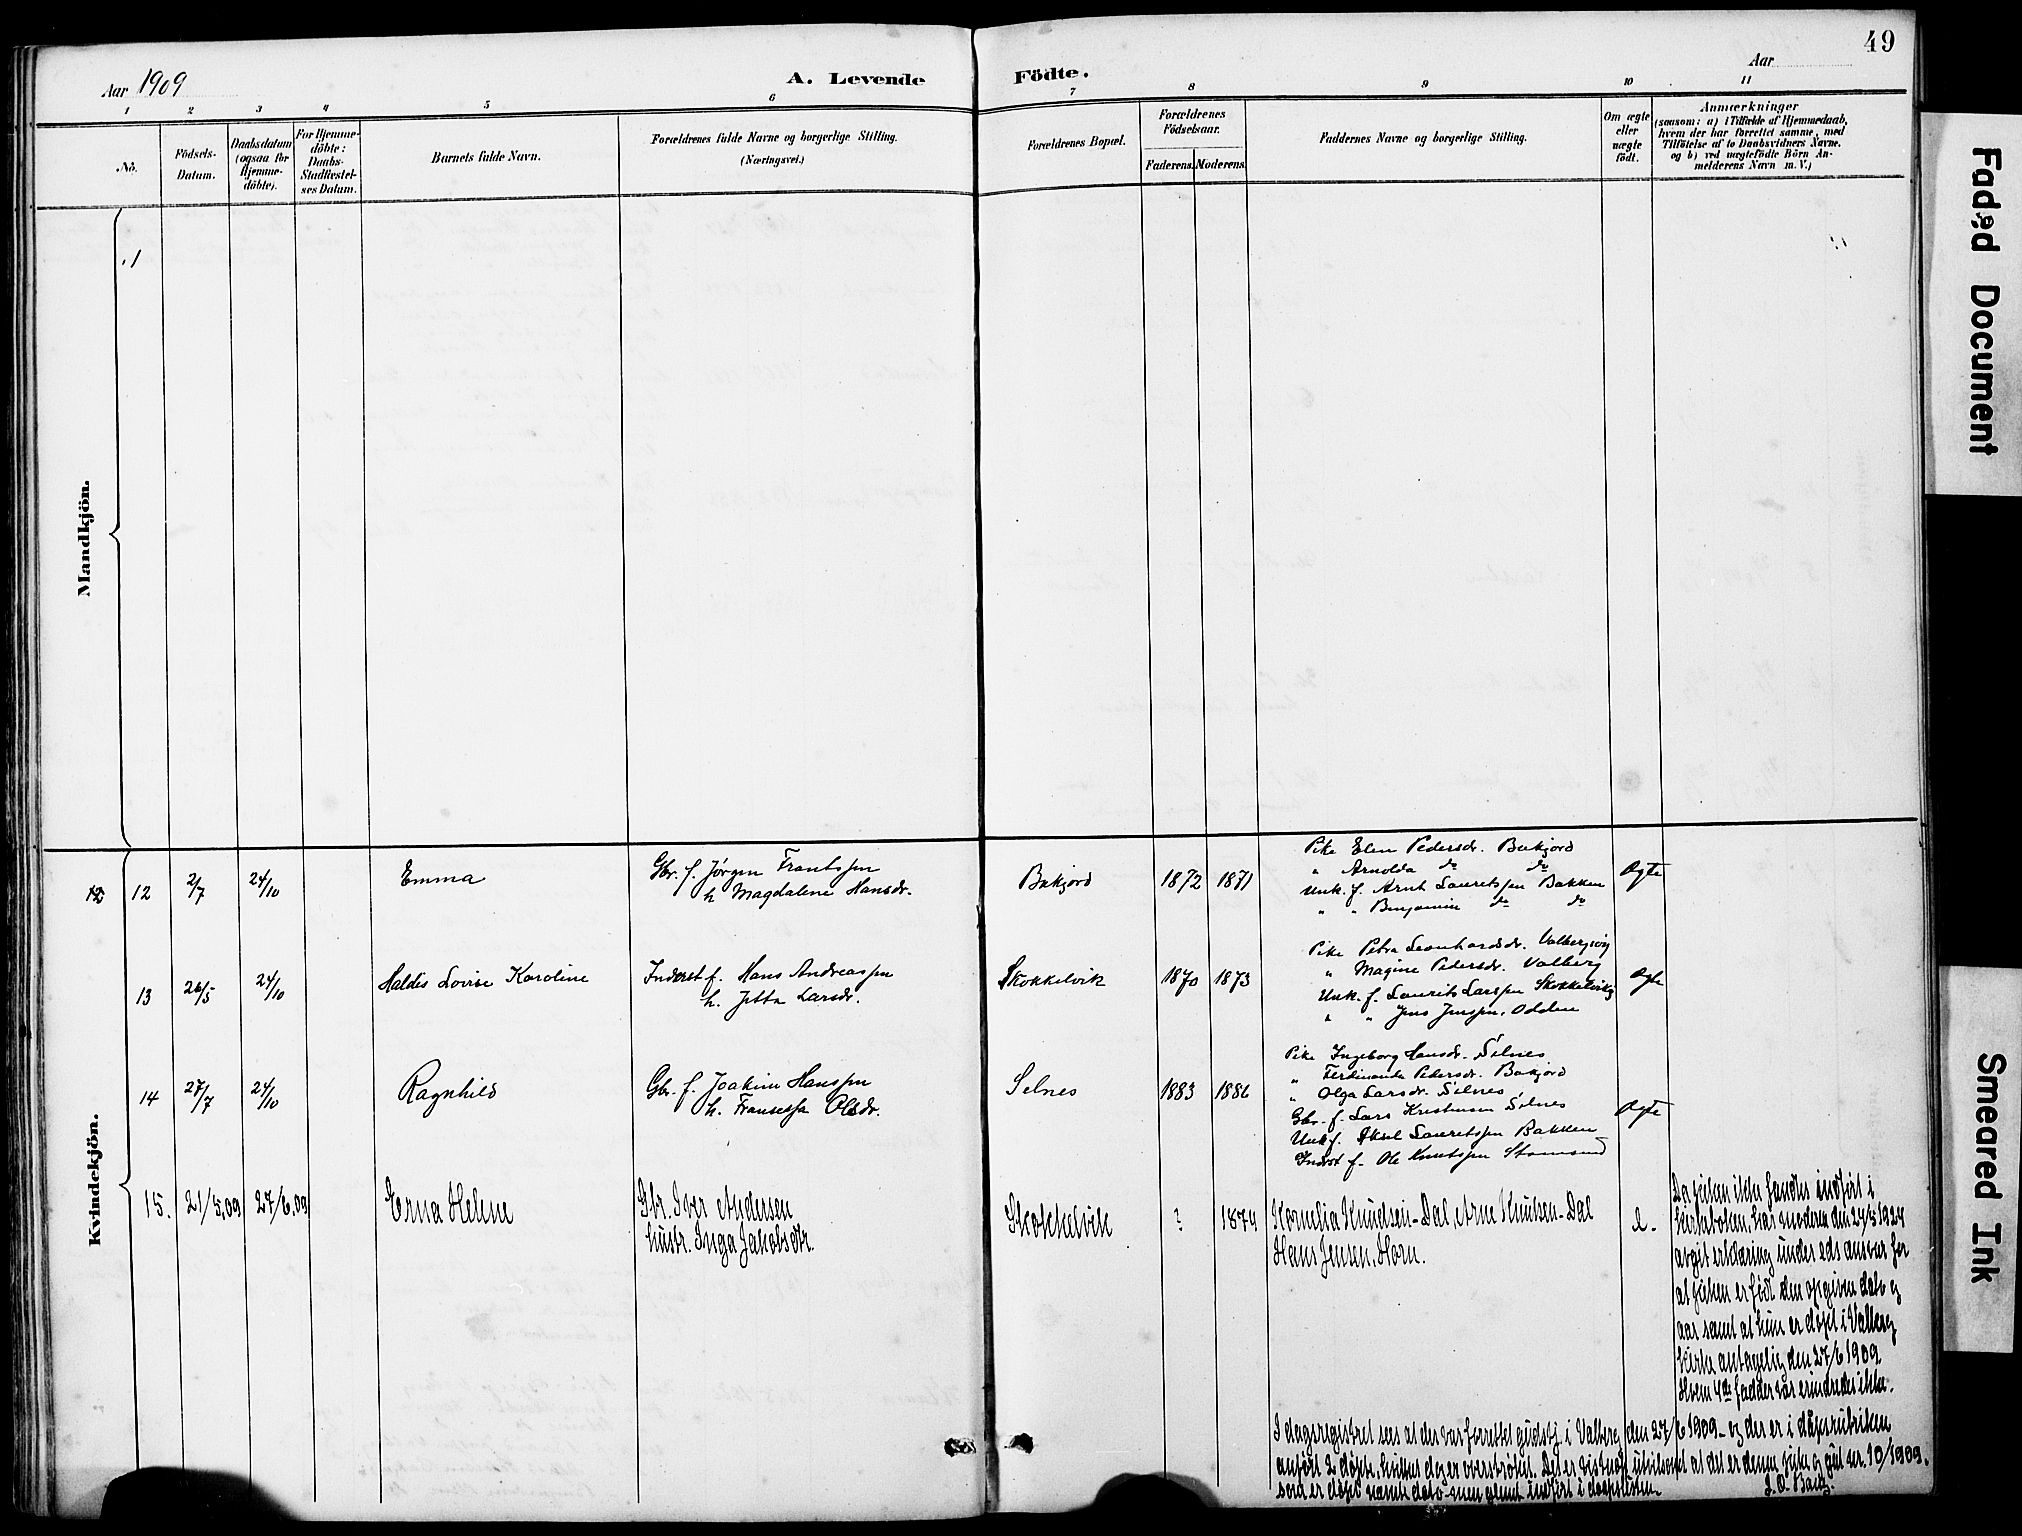 49
Aar 1909
A. Levende
Födte.
Aar
1 2 3 4 5 6 7 8 9 10 11
No.
Födsels-
Datum.
Daabsdatum
(ogsaa for
Hjemme-
döbte).
For Hjemme-
döbte:
Daabs-
Stadfæstel-
ses Datum.
Barnets fulde Navn.
Forældrenes fulde Navne og borgerlige Stilling.
(Næringsvei.)
Forældrenes Bopæl.
Forældrenes
Födselsaar.
Faderens. Moderens.
Faddernes Navne og borgerlige Stilling.
Om ægte
eller
uægte
födt.
Anmærkninger
(saasom: a) i Tilfælde af Hjemmedaab,
hvem der har forrettet samme, med
Tilföielse af to Daabsvidners Navne,
og b) ved uægtefödte Börn An-
melderens Navn m. V.)
Mandkjön.
1
Kvindekjön.
12 2/7 24/10 Emma
Gbr. f. Jørgen Frantssen
h. Magdalene Hansdr.
Bakjord 1872 1871
Pike Elen Pedersdr. Bakjord
" Arnolda do do
Unk. f. Arnt Lauretssen Bakken
" " Benjamin do do
Ægte
13 26/5 24/10 Haldis Lovise Karoline
Inderst f. Hans Andreassen
h. Jetta Larsdr.
Skokkelvik 1870 1873
Pike Petra Leonhardsdr. Valbergsvig
" Magine Pedersdr. Valberg
Unk. f. Laurits Larssen Skokkelvig
" " Jens Jenssen, Odden
Ægte
14 27/7 24/10 Ragnhild
Gbr. f. Joakim Hanssen
h. Fransessa Olsdr.
Selnes 1883 1886
Pike Ingeborg Hansdr. Selnes
" Ferdinanda Pedersdr. Bakjord
" Olga Larsdr. Selnes
Gbr. f. Lars Kristensen Selnes
Unk f. Aksel Lauretssen Bakken
Inderst f. Ole Knutssen Stamsund
Ægte
15. 21/5.09 27/6.09 Erna Helene
Gbr. Iver Andersen
hustr. Inga Jakobsdtr.
Skokkelvik ? 1874
Kornelia Knudsen-Dal, Arne Knutsen-Dal
Hans Jensen, Horn.
e.
Da piken ikke fandtes indført i
kirkeboken, har moderen den 24/5 1924
avgit erklæring under eds ansvar for
at piken er født den opgivne dato og
aar samt at hun er døpt i Valberg
kirke antagelig den 27/6 1909
Hvem 4de fadder var erindredes ikke.
I dagsregistret sees at der var forrettet gudstj. i Valberg den 27/6 1909 – og der er i dåpsrubriken
anført 2 døpte, hvilket dog er overstrøket. Det er vistnok utvilsomt at det er denne pike og gut nr. 10/1909.
som er døpt nævnte dato men glemt indført i daapslisten.
Faded Document
Smeared Ink